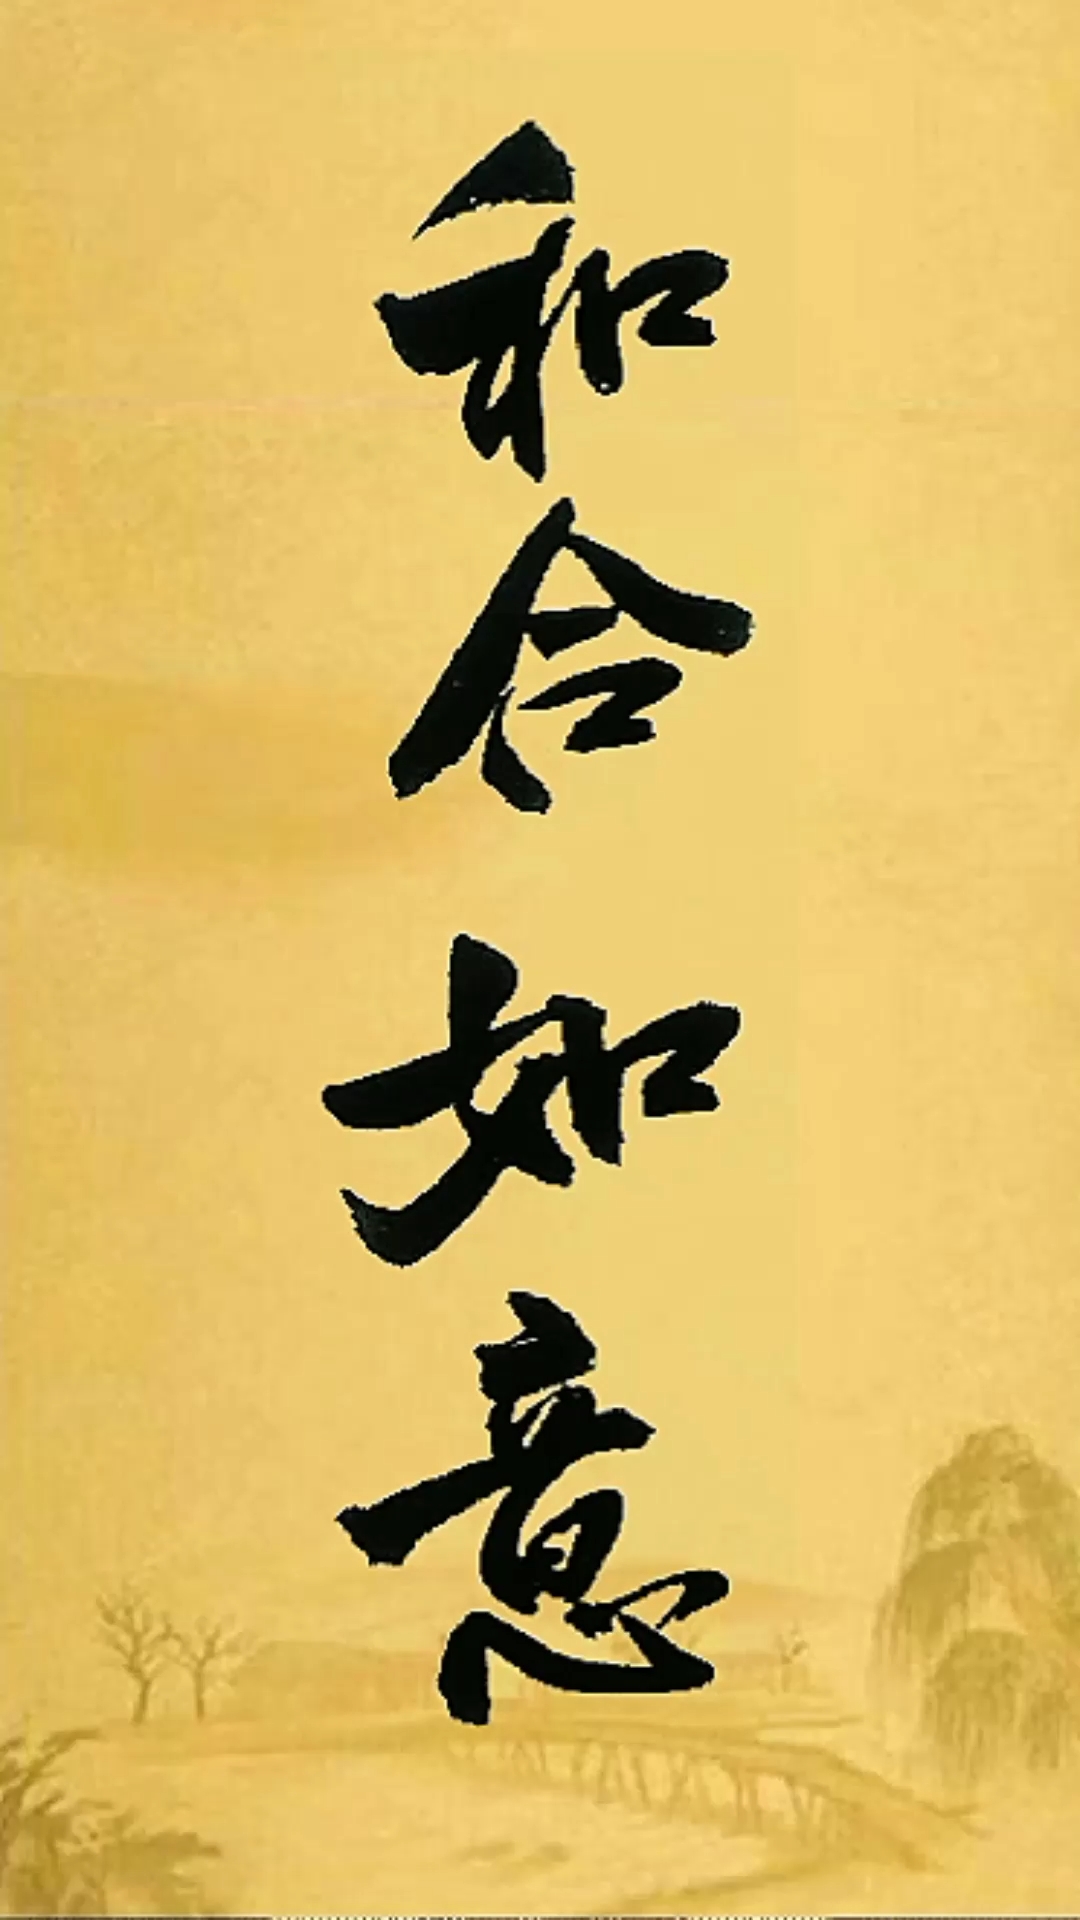 和合如意